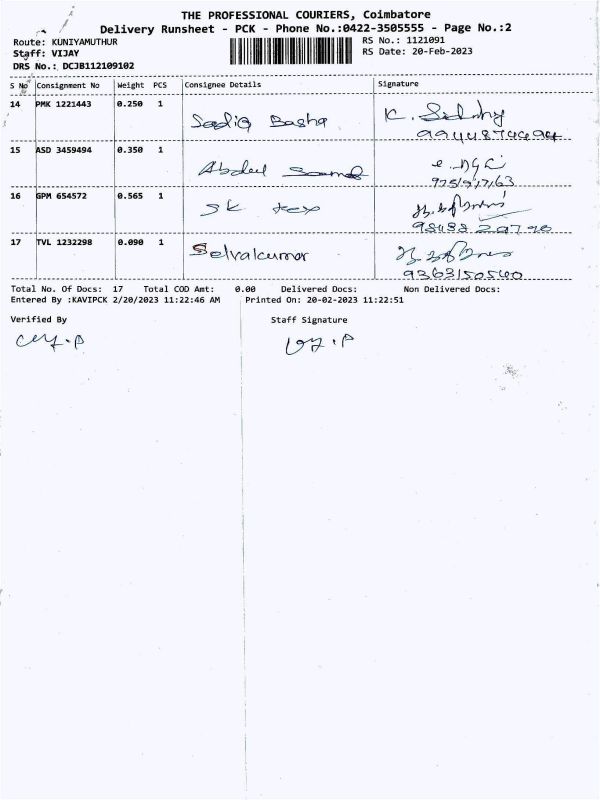 THE PROFESSIONAL COURIERS, Coimbatore
Delivery Runsheet - PCK - Phone No.:0422-3505555 - Page No.:2
Route: KUNIYAMUTHUR
RS No.: 1121091
Staff: VIJAY
RS Date: 20-Feb-2023
DRS No.: DCJB112109102
S No Consignment No Weight PCS Consignee Details Signature
14 PMK 1221443 0.250 1 Sadiq Basha K.
15 ASD 3459494 0.350 1 Abdul
16 GPM 654572 0.565 1 SK tex
17 TVL 1232298 0.090 1 Selvakumar
9363150540
Total No. Of Docs: 17 Total COD Amt: 0.00 Delivered Docs: Non Delivered Docs:
Entered By :KAVIPCK 2/20/2023 11:22:46 AM Printed On: 20-02-2023 11:22:51
Verified By Staff Signature